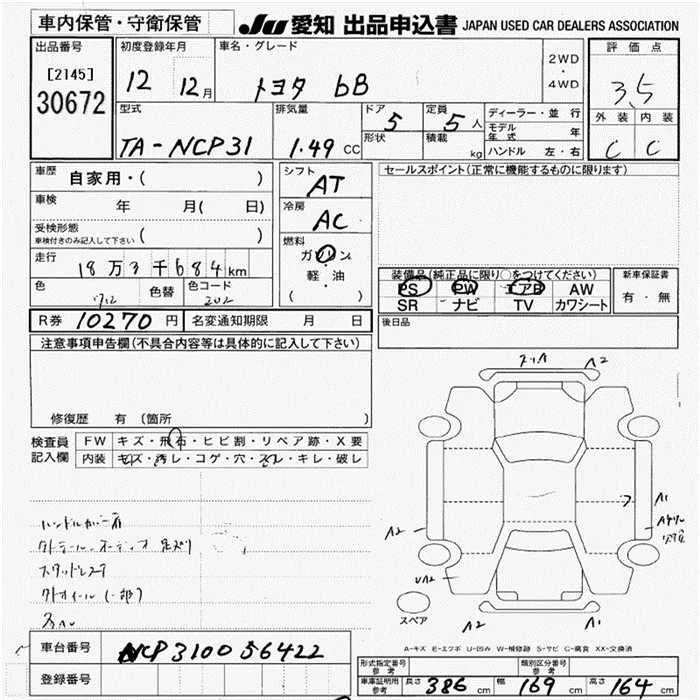 車内保管・守衛保管
JU 愛知 出品申込書 JAPAN USED CAR DEALERS ASSOCIATION
出品番号
[2145]
30672
初度登録年月
12 12月
車名・グレード
トヨタ bB
2WD
・
4WD
評価点
3.5
外装 内装
C C
型式
TA-NCP31
排気量
1.49 CC
ドア 5
形状
定員 5 人
積載 kg
ディーラー・並行
モデル年式 年
ハンドル 左・右
車歴 自家用・( )
車検 年 月( 日)
受検形態
車検付きのみ記入して下さい ( )
走行
18万3千684km
色
712
色替
色コード
202
シフト
AT
冷房
AC
燃料
ガソリン
・
軽・油
( )
セールスポイント(正常に機能するものに限ります)
装備品(純正品に限り○をつけてください)
PS PW エアB AW
SR ナビ TV カワシート
新車保証書
有・無
R券 10270 円
名変通知期限 月 日
後日品
注意事項申告欄(不具合内容等は具体的に記入して下さい)
修復歴 有 (箇所 )
検査員
記入欄
FW キズ・飛石・ヒビ割・リペア跡・X要
内装 キズ・汚レ・コゲ・穴・スレ・キレ・破レ
ハンドルカバー有
スタッドレス
A2
A1
A2
UA2
A2
A1
スペア
A-キズ E-エクボ U-凹み W-補修跡 S-サビ C-腐食 XX-交換済
車台番号 NCP31 0056422
登録番号
形式指定番号
参考
類別区分番号
参考
車庫証明用
参考
長さ 386 cm 幅 169 cm 高さ 164 cm